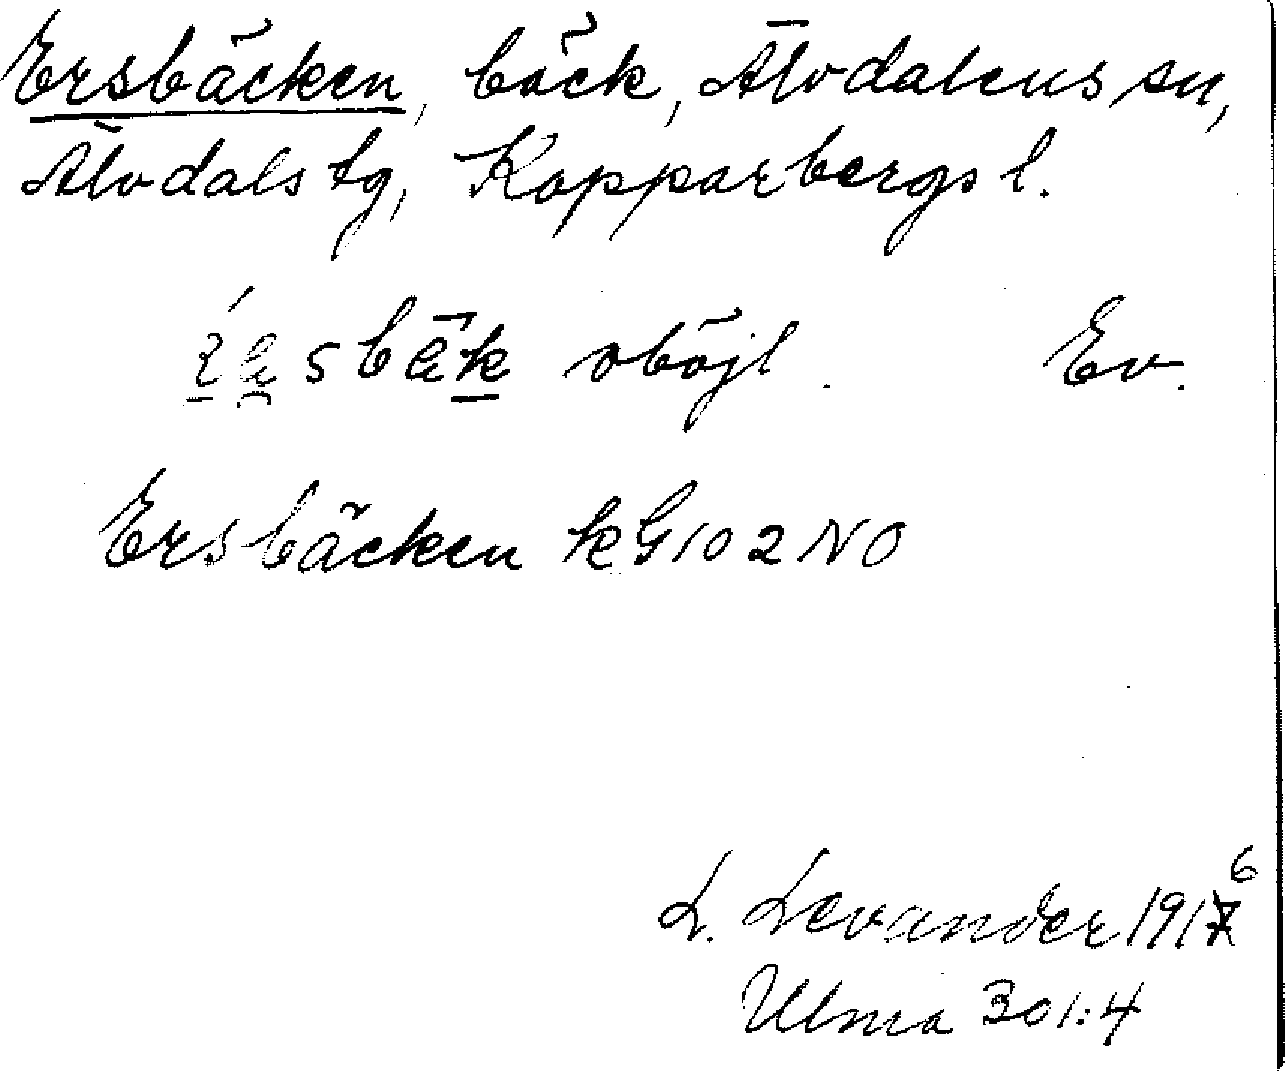 Ersbäcken, bäck, Älvdalens sn,
Älvdals tg, Kopparbergs l.
oböjl. Ev.
Ersbäcken kG102NO
L. Levander 1916
Ulma 301:4